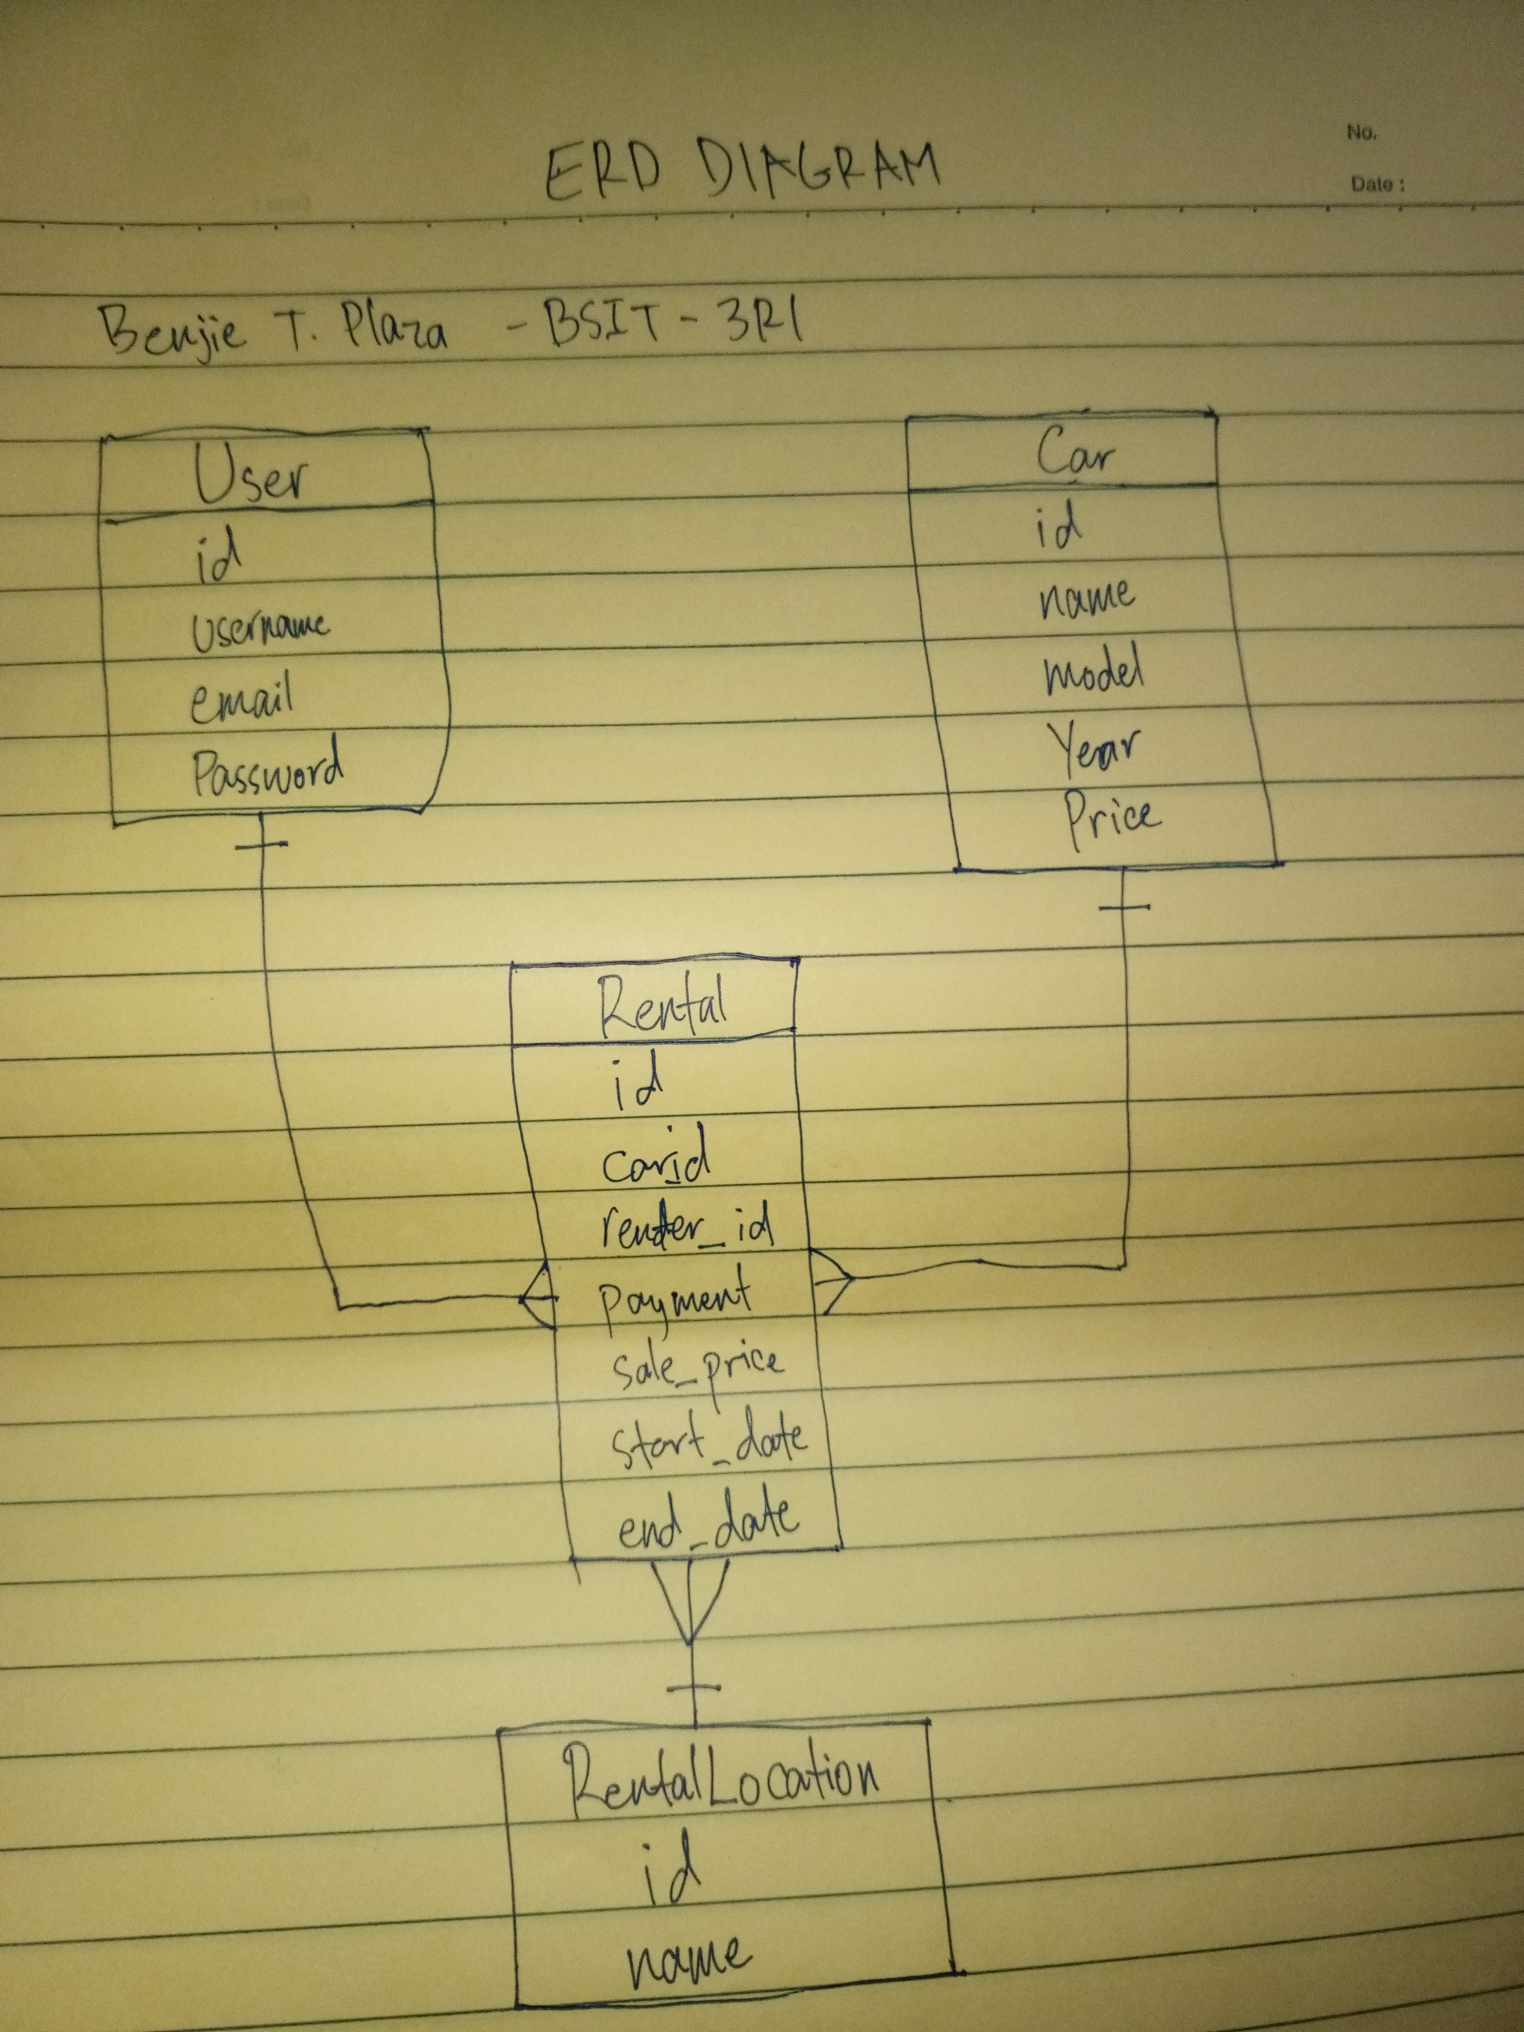 No.
Date :
ERD DIAGRAM
Benjie T. Plaza - BSIT - 3R1
User
id
Username
email
Password
Car
id
name
model
Year
Price
Rental
id
car_id
render_id
payment
sale_price
start_date
end_date
RentalLocation
id
name